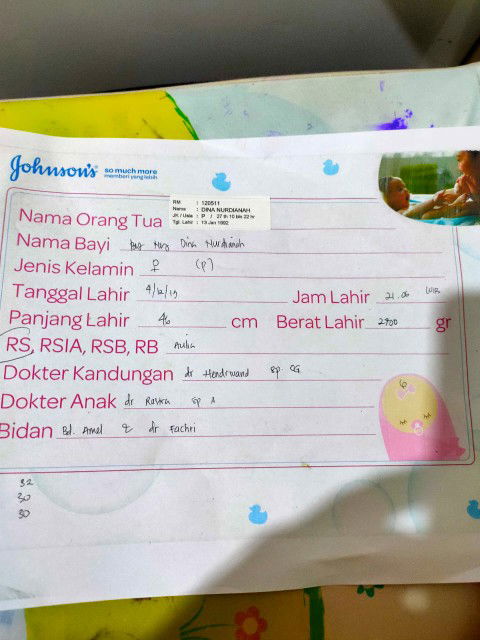 Johnson's so much more
memberi yang lebih
RM : 120511
Nama : DINA NURDIANAH
JK / Usia : P / 27 th 10 bln 22 hr
Tgl. Lahir : 13 Jan 1992
Nama Orang Tua
Nama Bayi By Ny Dina Nurdianah
Jenis Kelamin ♀ (P)
Tanggal Lahir 4/12/19 Jam Lahir 21.06 WIB
Panjang Lahir 46 cm Berat Lahir 2700 gr
RS, RSIA, RSB, RB Aulia
Dokter Kandungan dr Hendrwand Sp. OG
Dokter Anak dr Sp A
Bidan Bd. Amel & dr Fachri
32
30
30